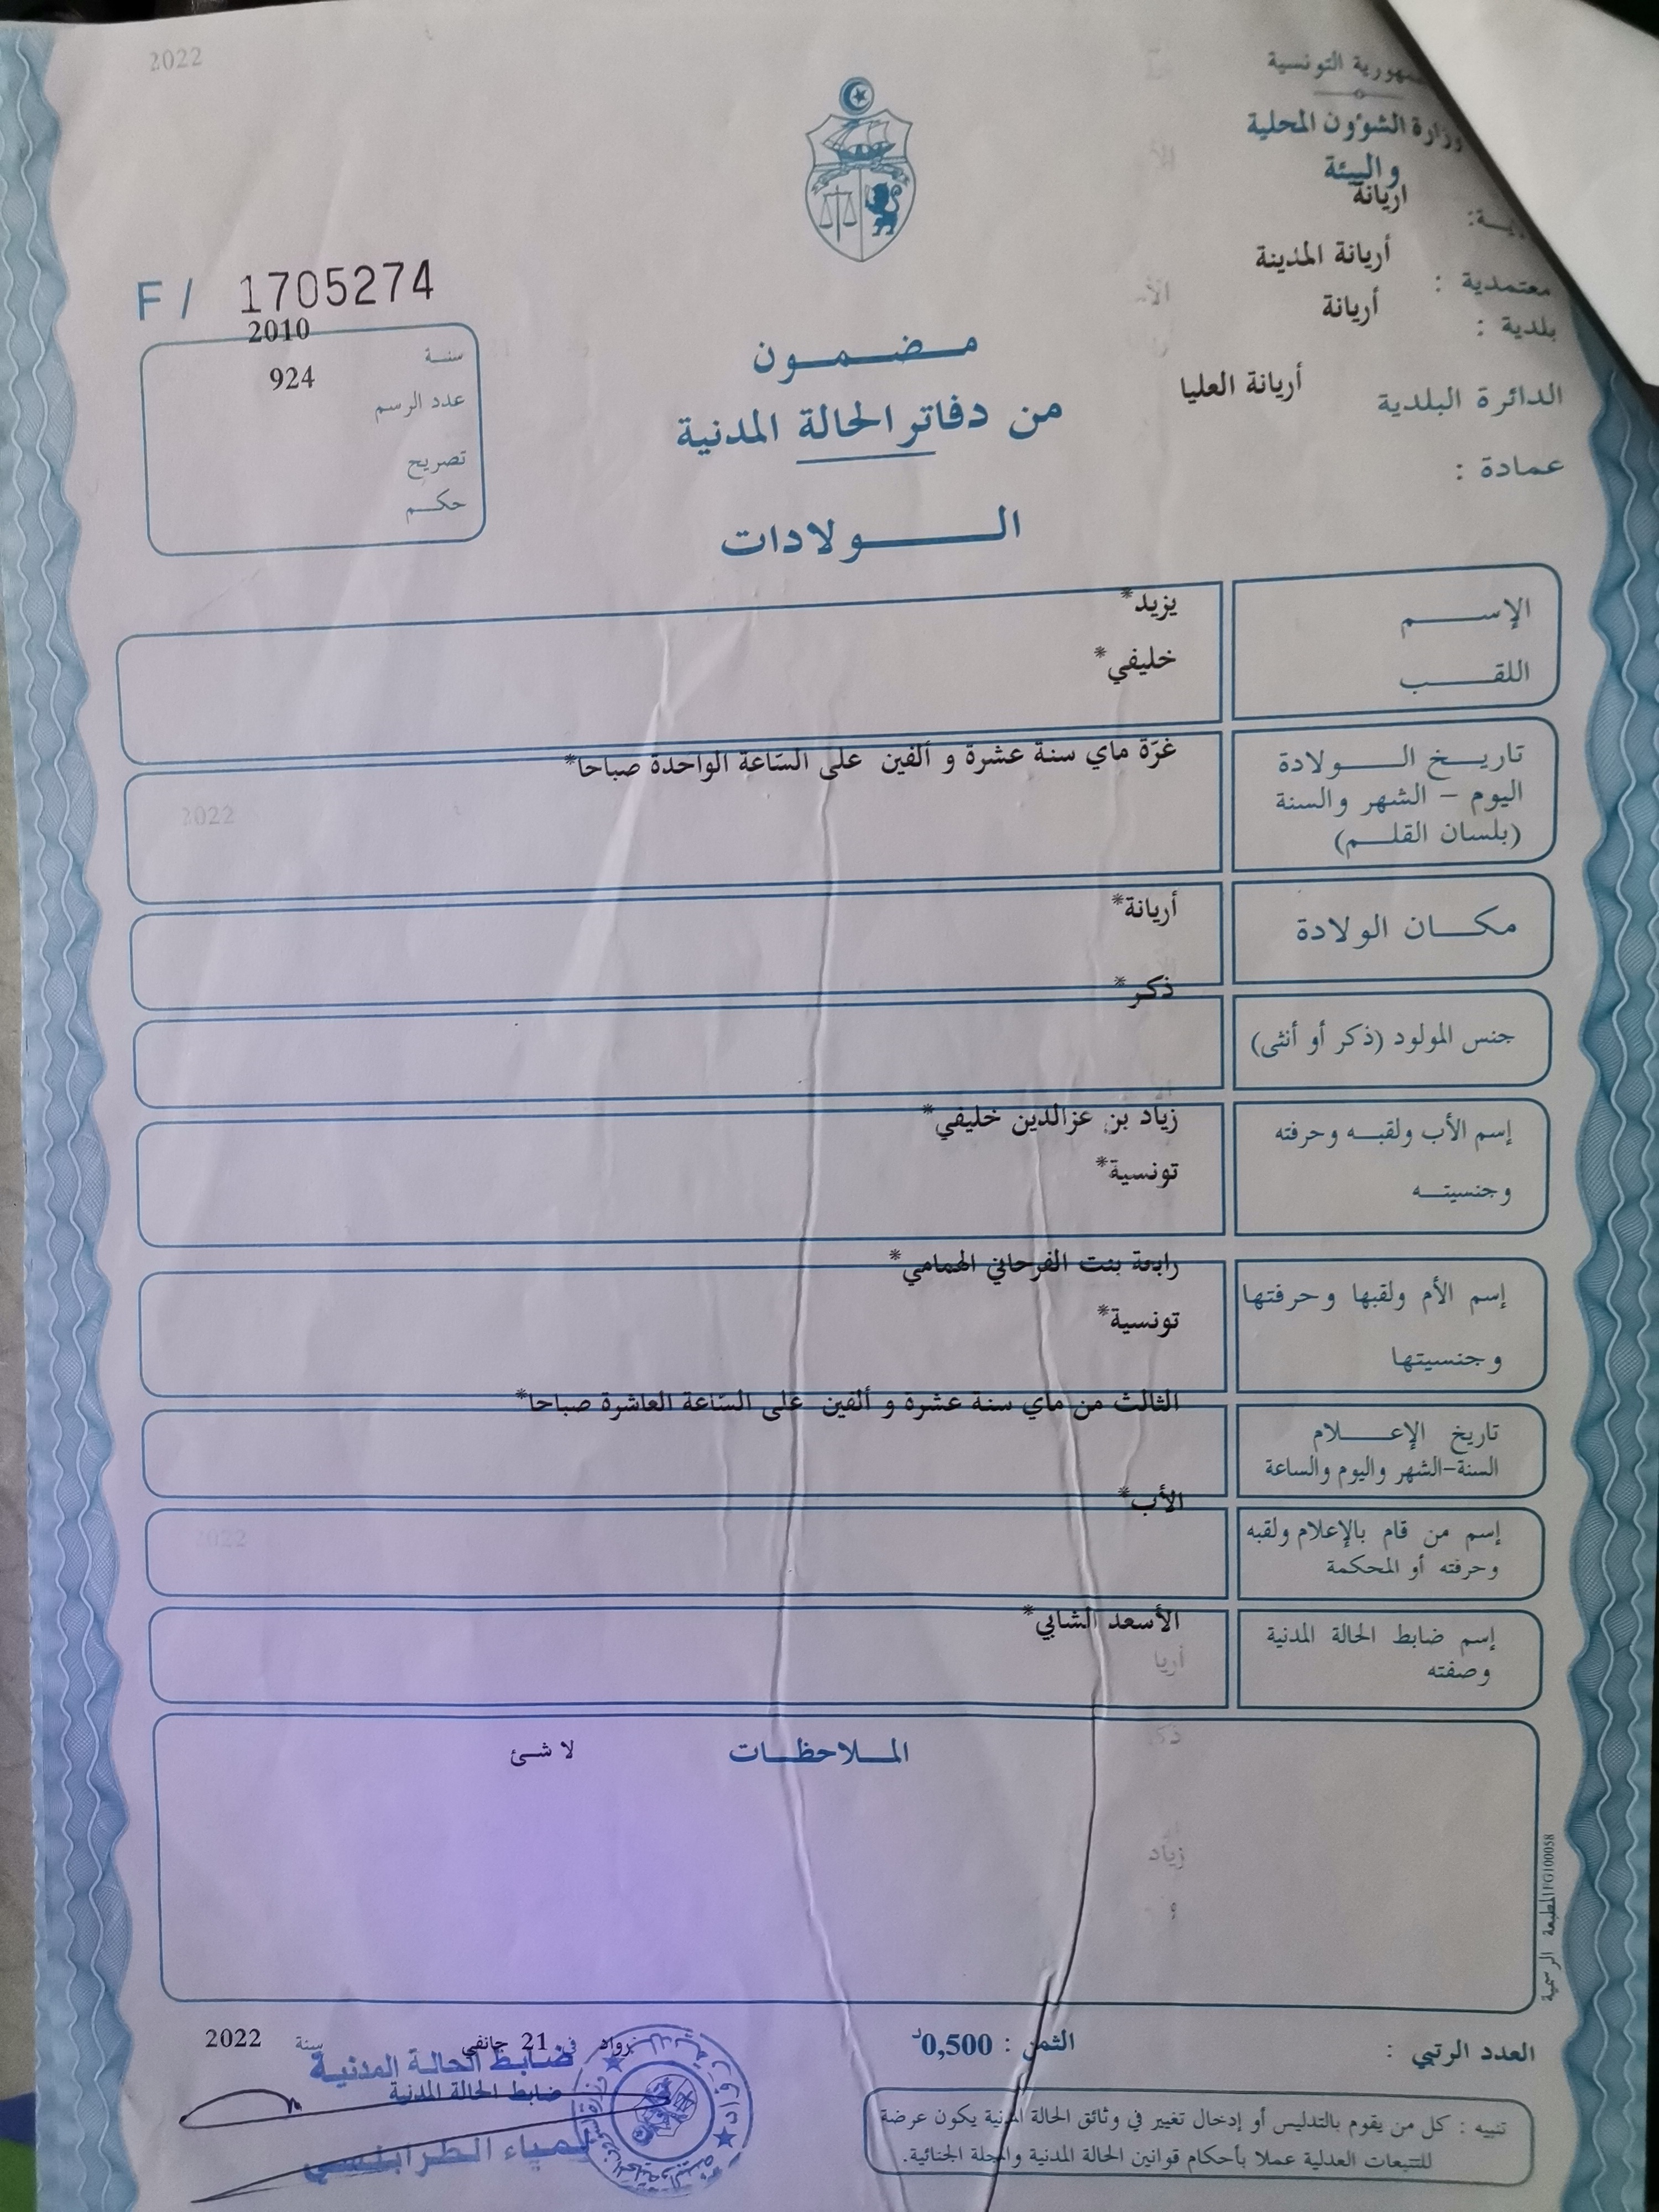 2022
الجمهورية التونسية
وزارة الشؤون المحلية
والبيئة
اريانة
معتمدية : أريانة المدينة
بلدية : أريانة
الدائرة البلدية أريانة العليا
عمادة :
F / 1705274
سنة 2010
عدد الرسم 924
تصريح
حكم
مضمون
من دفاتر الحالة المدنية
الولادات
الإسم يزيد*
اللقب خليفي*
تاريخ الولادة غرّة ماي سنة عشرة و ألفين على السّاعة الواحدة صباحا*
اليوم - الشهر والسنة
(بلسان القلم)
2022
مكان الولادة أريانة*
جنس المولود (ذكر أو أنثى) ذكر*
إسم الأب ولقبه وحرفته زياد بن عزالدين خليفي*
وجنسيته تونسية*
إسم الأم ولقبها وحرفتها رابعة بنت الفرحاني الهمامي*
وجنسيتها تونسية*
تاريخ الإعلام الثالث من ماي سنة عشرة و ألفين على السّاعة العاشرة صباحا*
السنة-الشهر واليوم والساعة
إسم من قام بالإعلام ولقبه الأب*
وحرفته أو المحكمة
2022
إسم ضابط الحالة المدنية الأسعد الشابي*
وصفته
الملاحظات لا شئ
المطبعة الرسمية IFG100058
العدد الرتبي :
الثمن : 0,500د
رواد في 21 جانفي سنة 2022
ضابط الحالة المدنية
ضابط الحالة المدنية
لمياء الطرابلسي
تنبيه : كل من يقوم بالتدليس أو إدخال تغيير في وثائق الحالة المدنية يكون عرضة
للتتبعات العدلية عملا بأحكام قوانين الحالة المدنية والمجلة الجنائية.